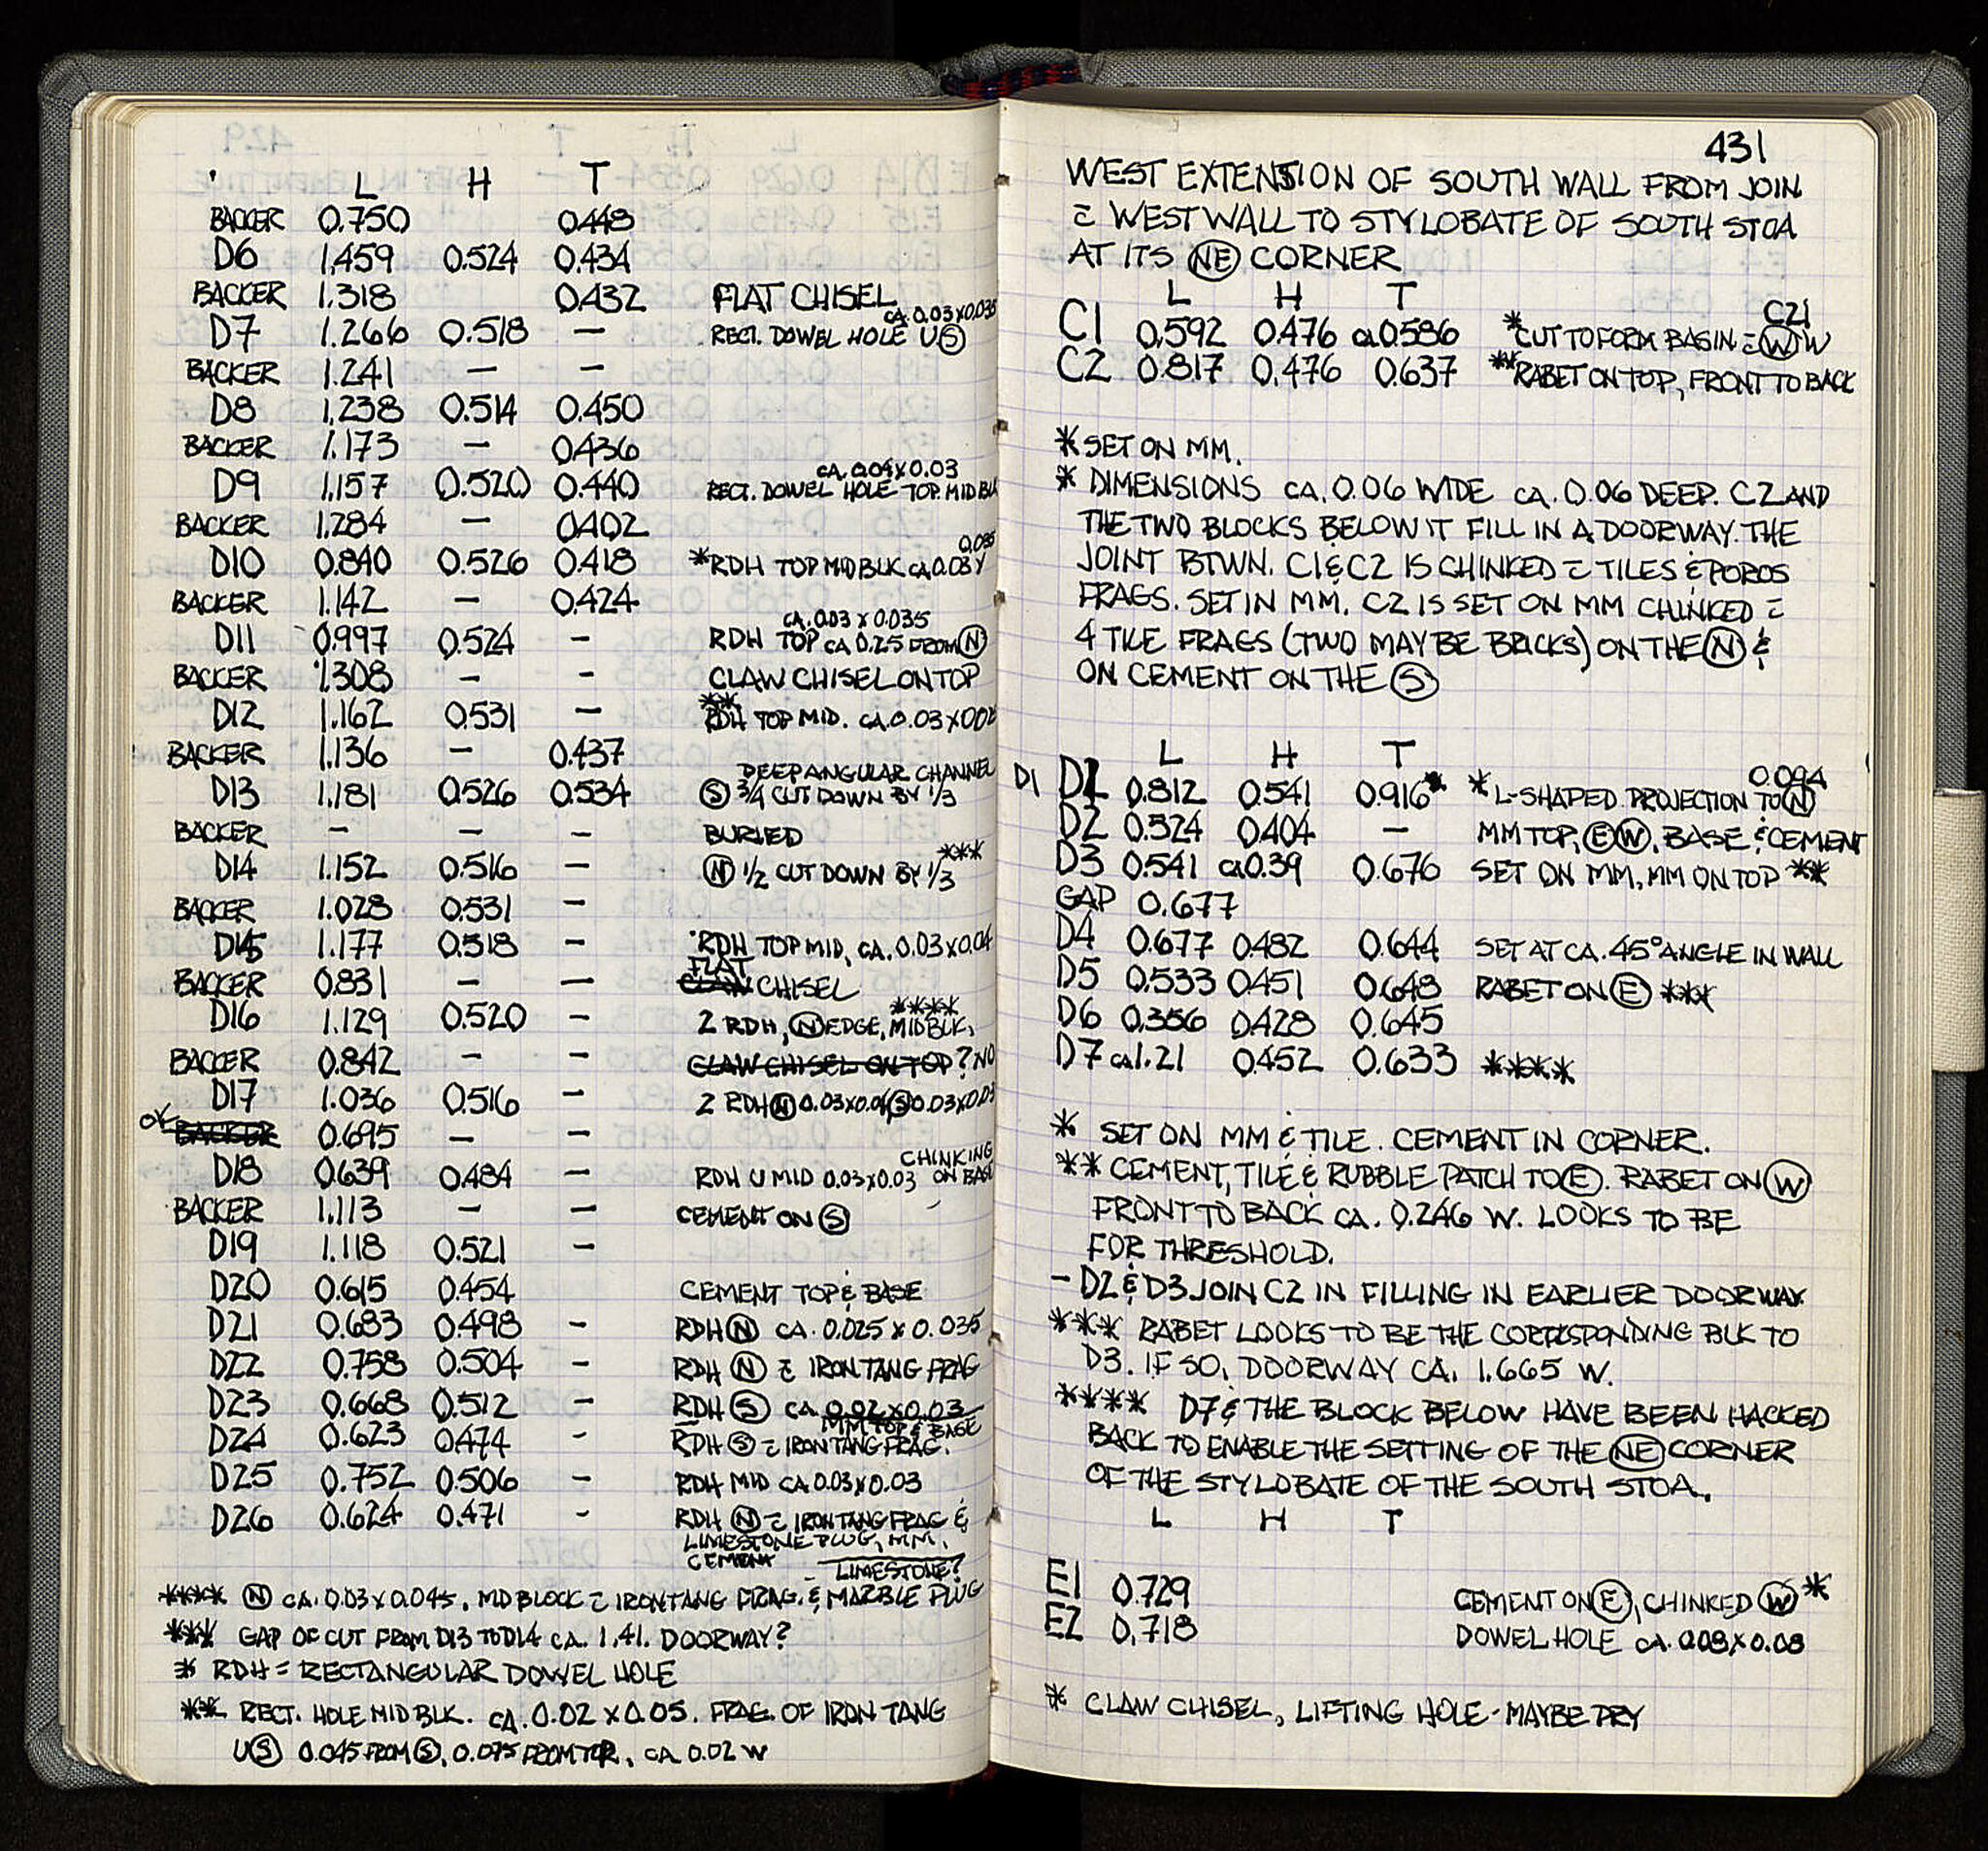 L H T
BACKER 0.750 0.448
D6 1.459 0.524 0.434
BACKER 1.318 0.432 FLAT CHISEL
CA. 0.03X0.035
D7 1.266 0.518 — RECT. DOWEL HOLE U Ⓢ
BACKER 1.241 — —
D8 1.238 0.514 0.450
BACKER 1.173 — 0.436
CA. 0.04X0.03
D9 1.157 0.520 0.440 RECT. DOWEL HOLE TOP MID BLK
BACKER 1.284 — 0.402
0.035
D10 0.840 0.526 0.418 *RDH TOP MID BLK CA 0.03 X
BACKER 1.142 — 0.424
CA. 0.03 X 0.035
D11 0.997 0.524 — RDH TOP CA 0.25 FROM Ⓝ
BACKER 1.308 — — CLAW CHISEL ON TOP
**
D12 1.162 0.531 — RDH TOP MID. CA. 0.03 X
BACKER 1.136 — 0.437
DEEP ANGULAR CHANNEL
D13 1.181 0.526 0.534 Ⓢ 3/4 CUT DOWN BY 1/3
BACKER — — — BURIED
***
D14 1.152 0.516 — Ⓝ 1/2 CUT DOWN BY 1/3
BACKER 1.028 0.531 —
D15 1.177 0.518 — RDH TOP MID, CA. 0.03X0.04
FLAT
BACKER 0.831 — — CLAW CHISEL
****
D16 1.129 0.520 — 2 RDH, Ⓝ EDGE, MID BLK,
BACKER 0.842 — — CLAW CHISEL ON TOP? NO
D17 1.036 0.516 — 2 RDH Ⓝ 0.03X0.04 Ⓢ 0.03X0.03
OK BACKER 0.695 — —
CHINKING
D18 0.639 0.484 — RDH U MID 0.03X0.03 ON BASE
BACKER 1.113 — — CEMENT ON Ⓢ
D19 1.118 0.521 —
D20 0.615 0.454 CEMENT TOP & BASE
D21 0.683 0.498 - RDH Ⓝ CA. 0.025 X 0.035
D22 0.758 0.504 - RDH Ⓝ C̄ IRON TANG FRAG
D23 0.668 0.512 - RDH Ⓢ CA 0.02X0.03
MM TOP & BASE
D24 0.623 0.474 - RDH Ⓢ C̄ IRON TANG FRAG.
D25 0.752 0.506 - RDH MID CA. 0.03X0.03
D26 0.624 0.471 - RDH Ⓝ C̄ IRON TANG FRAG &
LIMESTONE PLUG, MM,
CEMENT
LIMESTONE?
**** Ⓝ CA. 0.03X0.045. MID BLOCK C̄ IRON TANG FRAG. & MARBLE PLUG
*** GAP OF CUT FROM D13 TO D14 CA. 1.41. DOORWAY?
* RDH = RECTANGULAR DOWEL HOLE
** RECT. HOLE MID BLK. CA. 0.02 X 0.05. FRAG. OF IRON TANG
U Ⓢ 0.045 FROM Ⓢ, 0.075 FROM TOP, CA 0.02 W
431
WEST EXTENSION OF SOUTH WALL FROM JOIN
C̄ WEST WALL TO STYLOBATE OF SOUTH STOA
AT ITS (NE) CORNER
L H T
C21
C1 0.592 0.476 CA 0.586 *CUT TO FORM BASIN C̄ Ⓦ W
C2 0.817 0.476 0.637 **RABET ON TOP, FRONT TO BACK
* SET ON MM.
* DIMENSIONS CA. 0.06 WIDE CA. 0.06 DEEP. C2 AND
THE TWO BLOCKS BELOW IT FILL IN A DOORWAY. THE
JOINT BTWN. C1 & C2 IS CHINKED C̄ TILES & POROS
FRAGS. SET IN MM. C2 IS SET ON MM CHINKED C̄
4 TILE FRAGS (TWO MAY BE BRICKS) ON THE Ⓝ &
ON CEMENT ON THE Ⓢ
L H T
0.094
D1 D1 0.812 0.541 0.916* * L-SHAPED PROJECTION TO Ⓝ
D2 0.524 0.404 — MM TOP, Ⓔ Ⓦ, BASE & CEMENT
D3 0.541 CA 0.39 0.676 SET ON MM, MM ON TOP **
GAP 0.677
D4 0.677 0.482 0.644 SET AT CA. 45° ANGLE IN WALL
D5 0.533 0.451 0.648 RABET ON Ⓔ ***
D6 0.356 0.428 0.645
D7 CA 1.21 0.452 0.633 ****
* SET ON MM & TILE. CEMENT IN CORNER.
** CEMENT, TILE & RUBBLE PATCH TO Ⓔ. RABET ON Ⓦ
FRONT TO BACK CA. 0.246 W. LOOKS TO BE
FOR THRESHOLD.
- D2 & D3 JOIN C2 IN FILLING IN EARLIER DOORWAY
*** RABET LOOKS TO BE THE CORRESPONDING BLK TO
D3. IF SO, DOORWAY CA. 1.665 W.
**** D7 & THE BLOCK BELOW HAVE BEEN HACKED
BACK TO ENABLE THE SETTING OF THE (NE) CORNER
OF THE STYLOBATE OF THE SOUTH STOA.
L H T
E1 0.729 CEMENT ON Ⓔ, CHINKED Ⓦ *
E2 0.718 DOWEL HOLE CA. 0.08X0.08
* CLAW CHISEL, LIFTING HOLE - MAYBE PRY